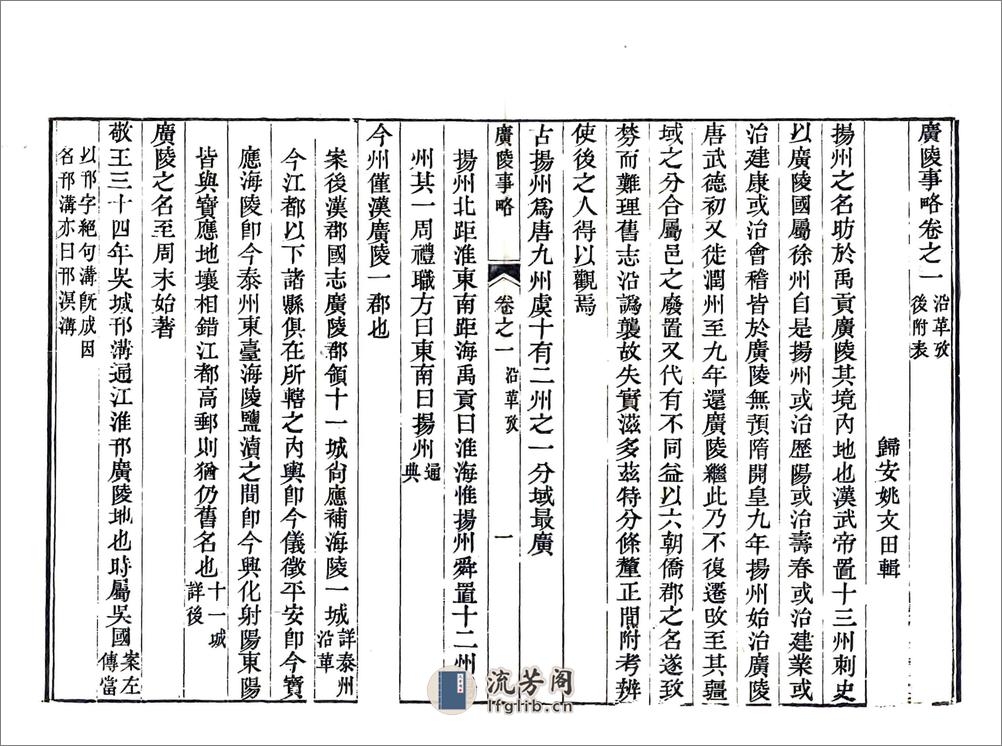 廣陵事略卷之一 沿革攷
後附表
歸安姚文田輯
揚州之名昉於禹貢廣陵其境內地也漢武帝置十三州刺史
以廣陵國屬徐州自是揚州或治歷陽或治壽春或治建業或
治建康或治會稽皆於廣陵無預隋開皇九年揚州始治廣陵
唐武德初又徙潤州至九年還廣陵繼此乃不復遷改至其疆
域之分合屬邑之廢置又代有不同益以六朝僑郡之名遂致
棼而難理舊志沿譌襲故失實滋多茲特分條釐正間附考辨
使後之人得以觀焉
占揚州爲唐九州虞十有二州之一分域最廣
廣陵事略 卷之一 沿革攷 一
揚州北距淮東南距海禹貢曰淮海惟揚州舜置十二州
州其一周禮職方曰東南曰揚州 通
典
今州僅漢廣陵一郡也
案後漢郡國志廣陵郡領十一城尙應補海陵一城 詳泰州
沿革
今江都以下諸縣俱在所轄之內輿卽今儀徵平安卽今寶
應海陵卽今泰州東臺海陵鹽瀆之間卽今興化射陽東陽
皆與寶應地壤相錯江都高郵則猶仍舊名也 十一城
詳後
廣陵之名至周末始著
敬王三十四年吳城邗溝通江淮邗廣陵地也時屬吳國 案左
傳當
以邗字絕句溝旣成因
名邗溝亦曰邗溟溝
流芳阁
lfglib.cn